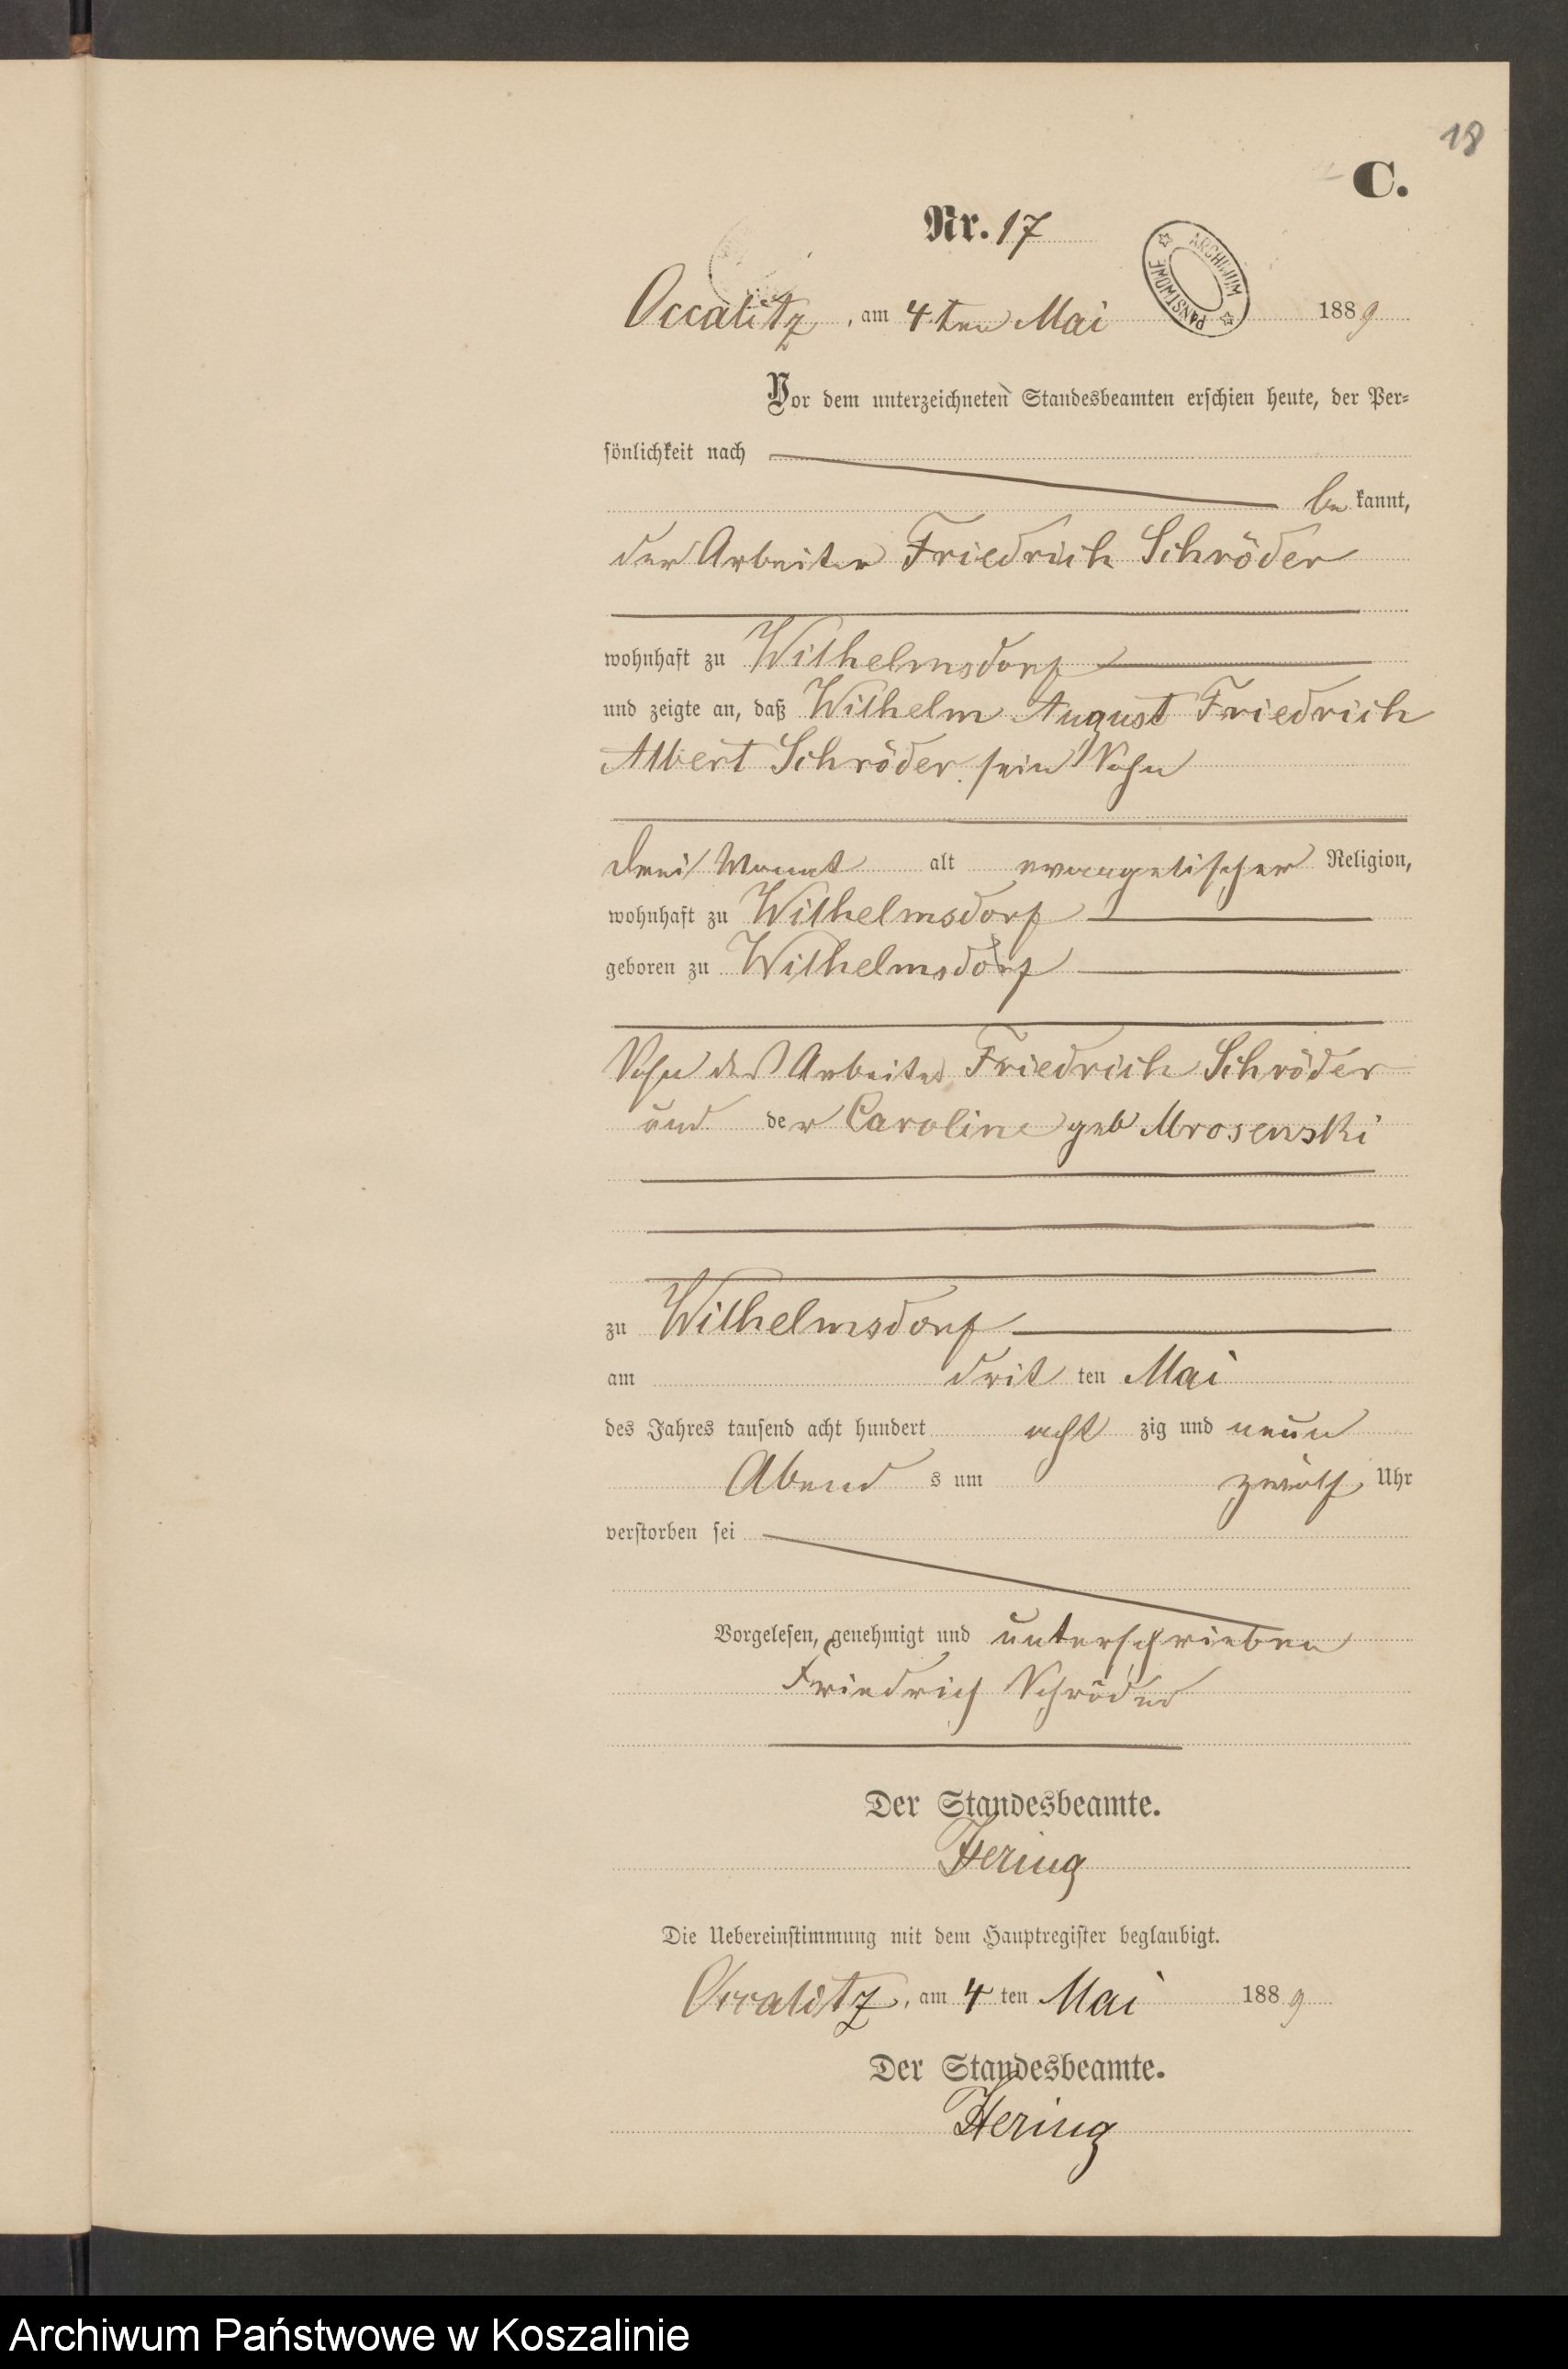 18
C.
Nr. 17
ARCHIWUM PAŃSTWOWE
Occalitz, am 4ten Mai 1889
Vor dem unterzeichneten Standesbeamten erschien heute, der Per-
sönlichkeit nach
be kannt,
der Arbeiter Friedrich Schröder
wohnhaft zu Wilhelmsdorf
und zeigte an, daß Wilhelm August Friedrich
Albert Schröder sein Sohn
drei Monat alt evangelischer Religion,
wohnhaft zu Wilhelmsdorf
geboren zu Wilhelmsdorf
Sohn des Arbeiter Friedrich Schröder
und der Caroline geb Mrosenski
zu Wilhelmsdorf
am drit ten Mai
des Jahres tausend acht hundert acht zig und neun
Abend s um zwölf Uhr
verstorben sei
Vorgelesen, genehmigt und unterschrieben
Friedrich Schröder
Der Standesbeamte.
Hering
Die Uebereinstimmung mit dem Hauptregister beglaubigt.
Occalitz, am 4 ten Mai 1889
Der Standesbeamte.
Hering
Archiwum Państwowe w Koszalinie